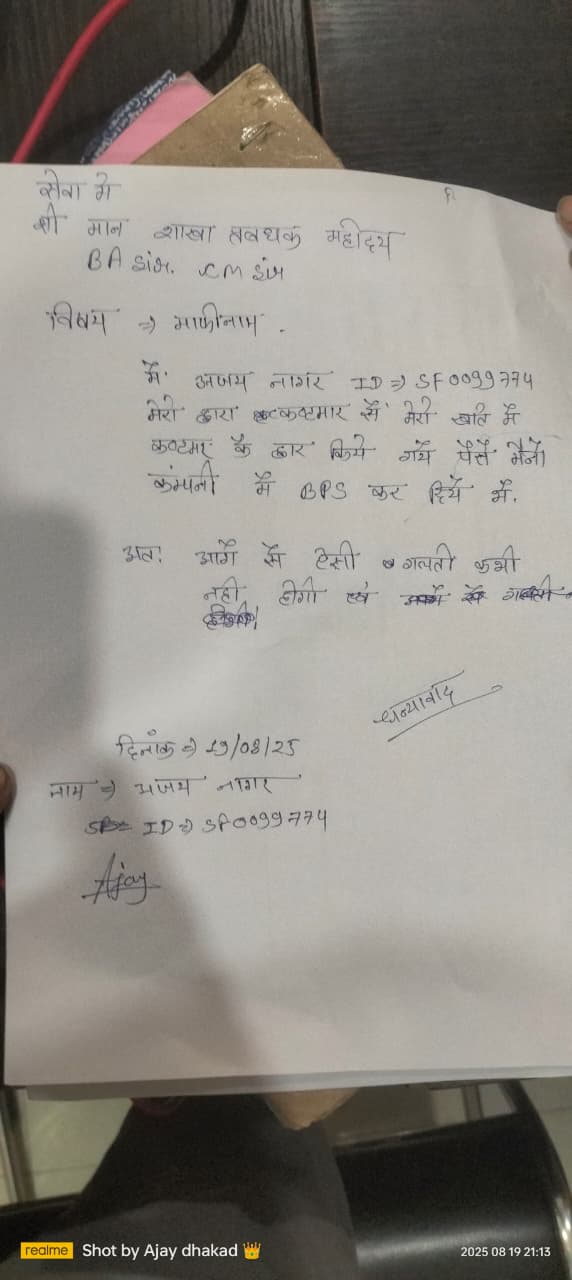 सेवा मे
श्री मान शाखा प्रबधक महोदय
BA इंग. CM इंग
विषय ⇒ माफीनाम.
मैं अजय नागर ID ⇒ SF0099774
मेरो द्वारा कस्टमार सें मेरो खाते में
कस्टमर के द्वार किये गये पैसे मैंने
कंम्पनी में BPS कर दिये में.
अत: आगे से ऐसी गलती कभी
नही होगी एवं
धन्यावाद
दिनांक ⇒ 19/08/25
नाम ⇒ अजय नागर
ID ⇒ SF0099774
Ajay
realme Shot by Ajay dhakad 👑 2025 08 19 21:13